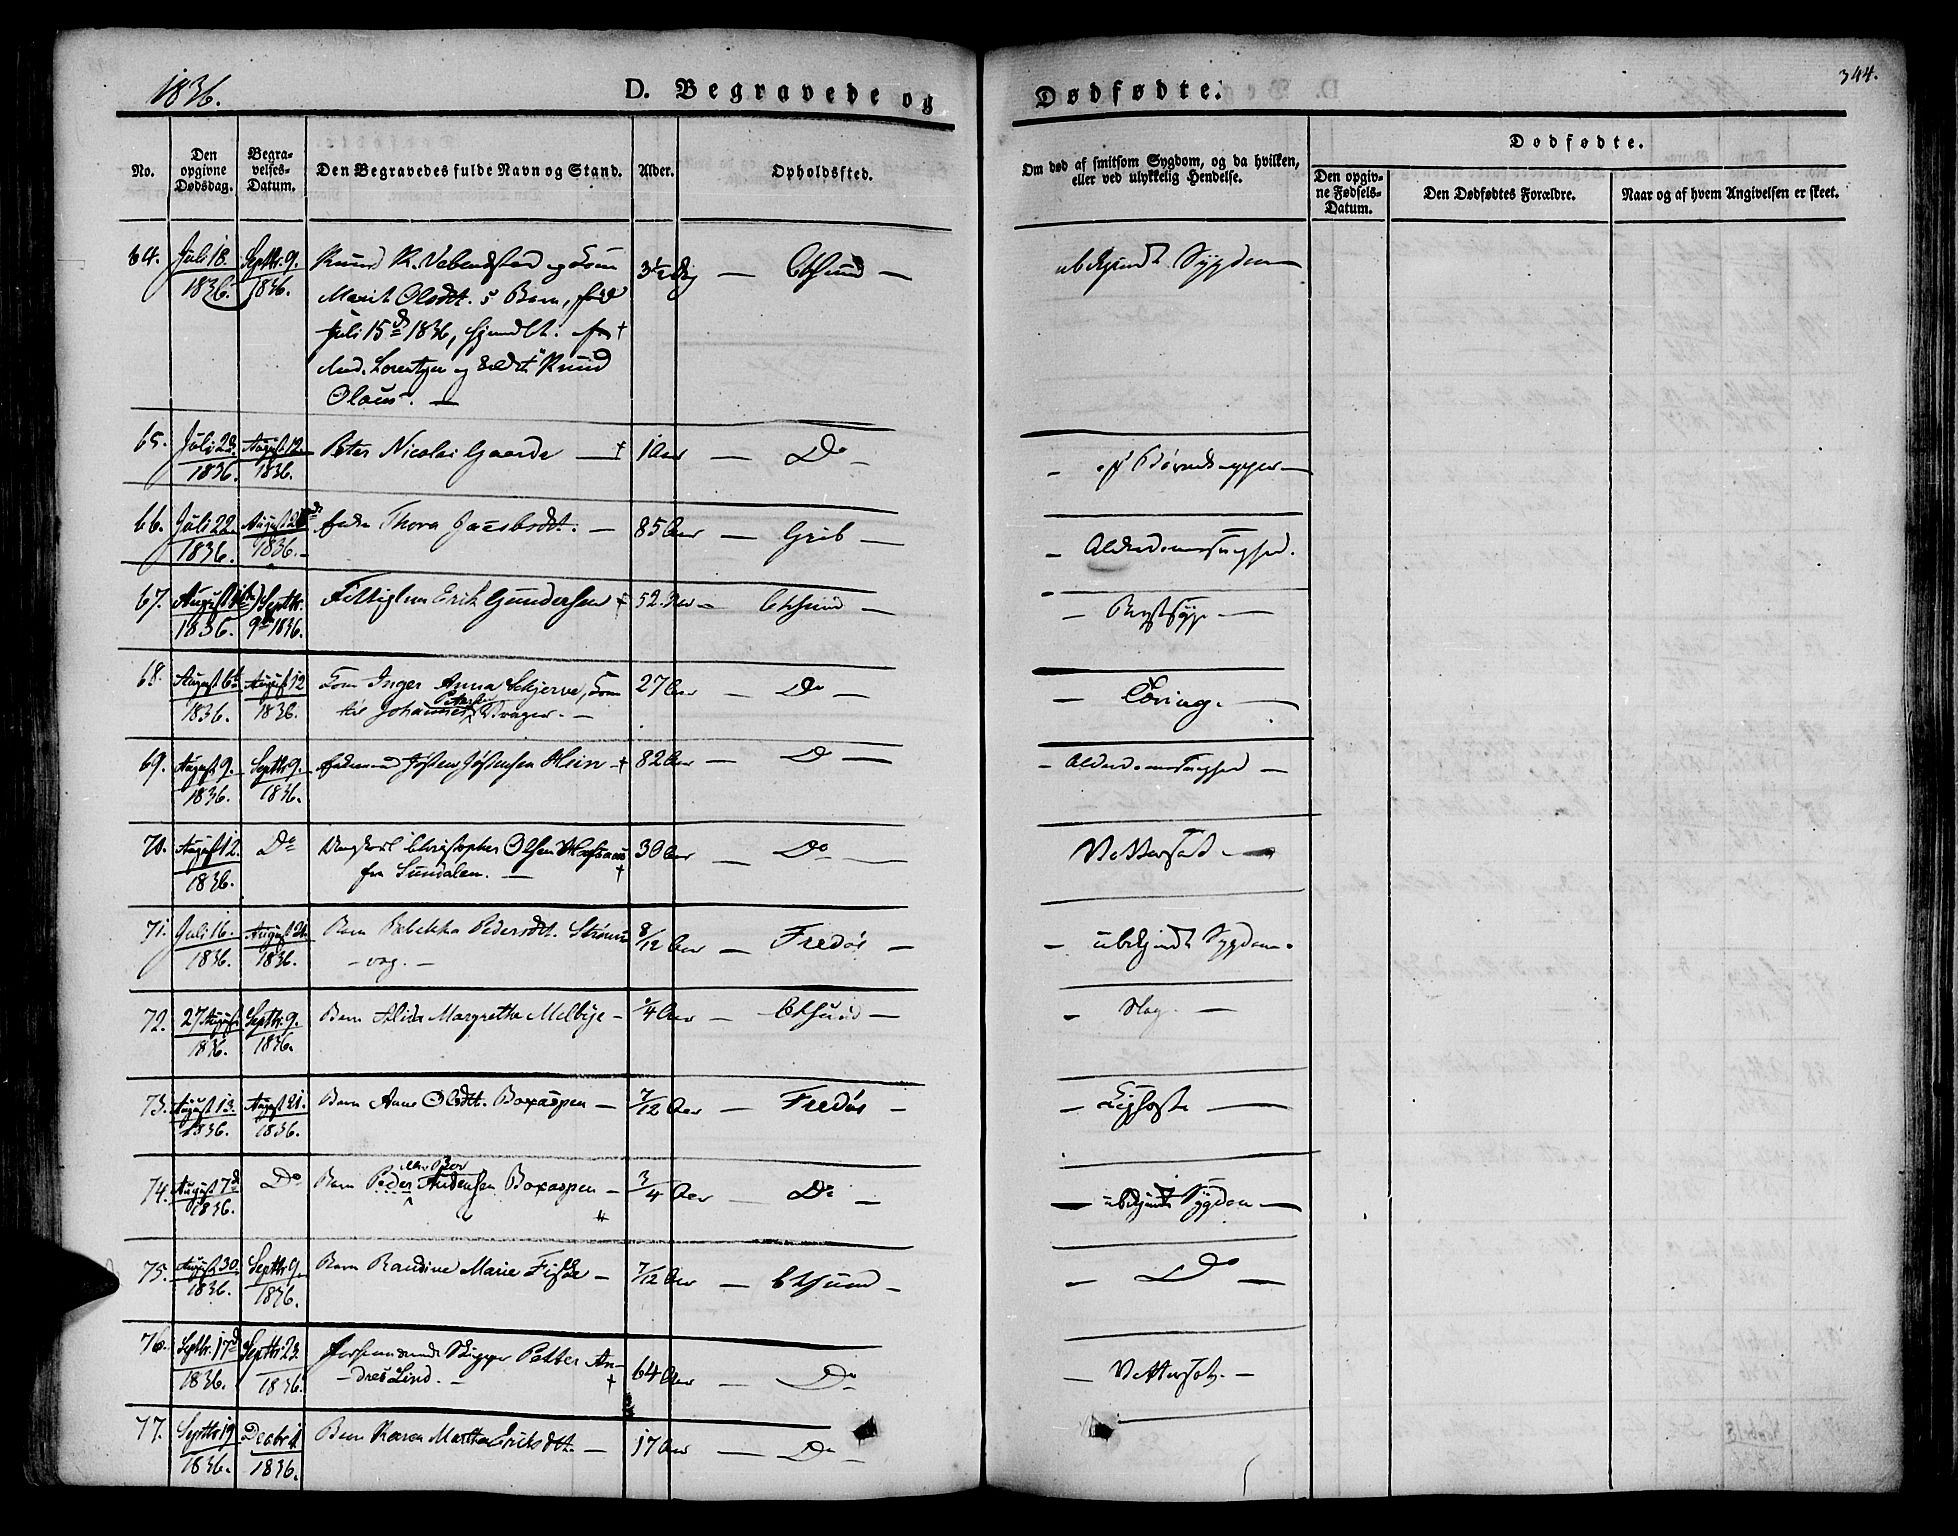 1836.
D. Begravede og
Dødfødte.
344.
No.
Den opgivne Dødsdag.
Begravelses-Datum.
Den Begravedes fulde Navn og Stand.
Alder.
Opholdssted.
Om død af smitsom Sygdom, og da hvilken, eller ved ulykkelig Hendelse.
Dødfødte.
Den opgivne Fødsels-Datum.
Den Dødfødtes Forældre.
Naar og af hvem Angivelsen er skeet.
64. Juli 18. 1836. Septbr. 9. 1836. Knud K. og Kone
Marit Olsdt. s Barn, fød
Juli 15d 1836, hjemdbt. af
And. Lorentzen og kaldet Knud
Olaus. —
3½ Dag — Chsund — ubekjendt Sygdom —
65. Juli 1836. August 12. 1836. Peter Nicolai Gaarde — † 1 Aar — Do —
66. Juli 22. 1836. August 1836. Enke Thora Jacobsdt. — 85 Aar — Grib — Alderdomssvaghed.
67. August 1836. Septbr. 9de 1836. Fattiglem Erik Gundersen † 52 Aar — Chsund — Brystsyge —
68. August 6te 1836. August 12 1836. Kone Inger Anna Skjerve, Kone
til Johannes Svager. —
27 Aar — Do — Tæring. —
69. August 9. 1836. Septbr. 9. 1836. Enkemand Josten Jostensen Hein — † 82 Aar — Do — Alderdomssvaghed —
70. August 12. 1836. Do Ungkarl Christopher Olsen
fra Sundalen. — †
30 Aar — Do — Vattersot —
71. Juli 16. 1836. August 21. 1836. Barn Rebekka Pedersdt. Strøms-
vog. —
8/12 Aar — Fredøe — ubekjendt Sygdom.
72. 27 August 1836. Septbr. 9. 1836. Barn Alida Margretha Melbye — ¼ Aar — Chsund — Slag. —
73. August 13. 1836. August 21. 1836. Barn Anne Olsdt. Boxaspen — 7/12 Aar — Fredøe — Kighoste —
74. August 7d 1836. Do Barn Peder Andersen Boxaspen — ¾ Aar — Do — ubekjendt Sygdom —
75. August 30. 1836. Septbr. 9. 1836. Barn Randine Marie Fiske — 7/12 Aar — Chsund — Do —
76. Septbr. 17d 1836. Septbr. 23. 1836. Skipper Petter An-
dreas Lind. — †
64 Aar — Do — Vattersot. —
77. Septbr. 19 1836. Decbr. 1 1836. Barn Karen Martha Eriksdt. — 17 Aar — Do